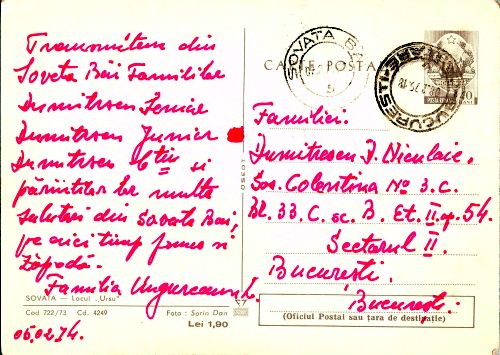 Transmitem din
Soveta Băi Familiilor
Dumitrescu Senior
Dumitrescu Junior
Dumitrescu C-tin si
părinților lor multe
salutări din Sovata Băi,
pe aici timp frumos si
Zăpadă.
Familia Ungureanu
SOVATA — Locul „Ursu”
Cod 722/73 Cd. 4249
Foto: Sorin Dan
Lei 1,90
05.02.74.
CARTE POSTALA
SOVATA BAI
5
BUCURESTI
POSTA ROMANA
Familiei:
Dumitrescu D. Niculaie.
Sos. Colentina No 3. C.
Bl. 33. C. sc. B. Et. II. ap. 54.
Sectorul II.
București.
București.
(Oficiul Postal sau țara de destinație)